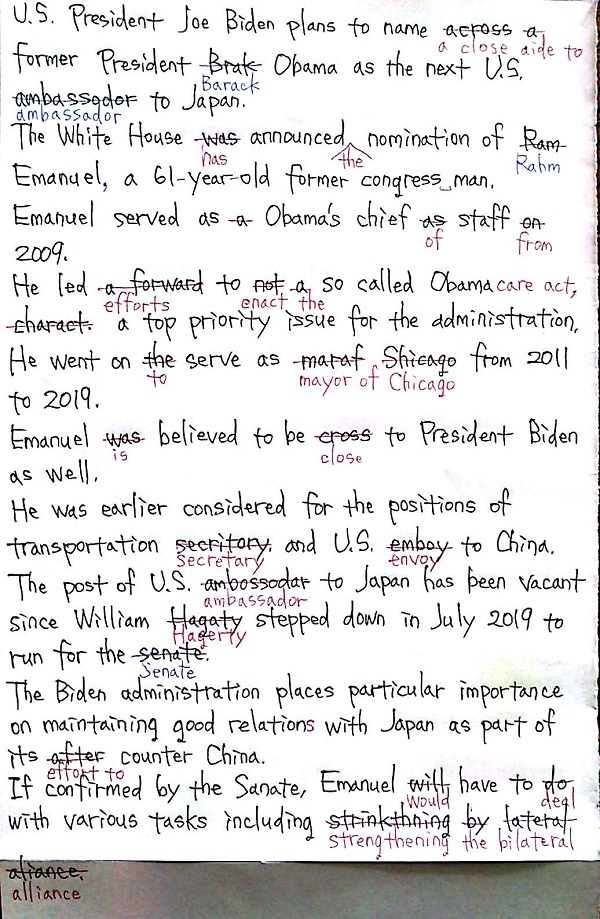 U.S. President Joe Biden plans to name across a
a close aide to
former President Brak Obama as the next U.S.
Barack
ambassodor to Japan.
ambassador
The White House was announced nomination of Ram
has the Rahm
Emanuel, a 61-year-old former congress man.
Emanuel served as a Obama's chief as staff on
of from
2009.
He led a forward to not a so called Obamacare act,
efforts enact the
charact. a top priority issue for the administration.
He went on the serve as maraf Shicago from 2011
to mayor of Chicago
to 2019.
Emanuel was believed to be cross to President Biden
is close
as well.
He was earlier considered for the positions of
transportation secritory. and U.S. emboy to China.
secretary envoy
The post of U.S. ambossodar to Japan has been vacant
ambassador
since William Hagaty stepped down in July 2019 to
Hagerty
run for the senate.
Senate
The Biden administration places particular importance
on maintaining good relations with Japan as part of
its after counter China.
effort to
If confirmed by the Sanate, Emanuel will have to do
would deal
with various tasks including strinkthning by lateral
strengthening the bilateral
aliance.
alliance